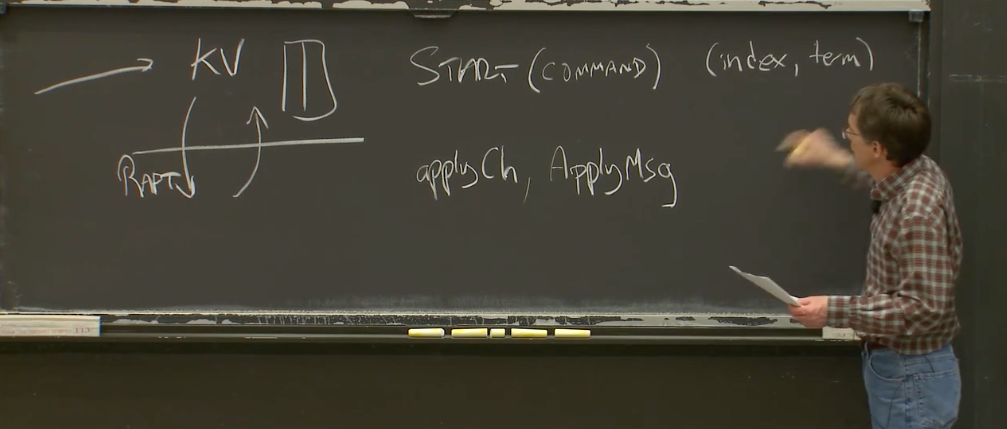 KV START (COMMAND) (index, term)
RAFT applyCh, ApplyMsg